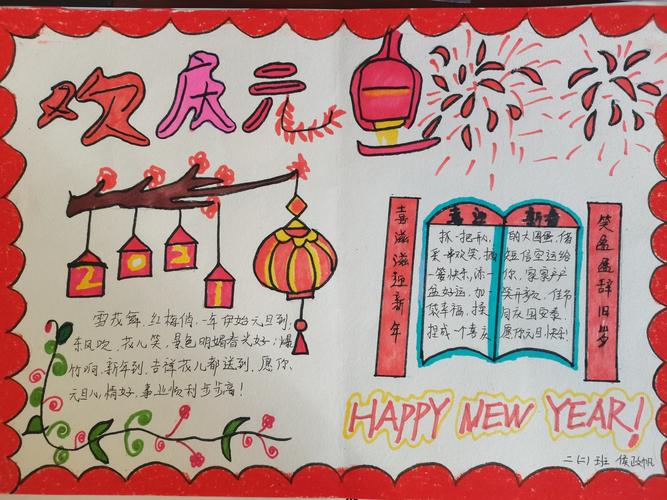 欢庆元旦
2021
雪花舞,红梅俏,一年伊始元旦到;
东风吹,花儿笑,景色明媚春光好;爆
竹响,新年到,吉祥花儿都送到,愿你
元旦心情好,事业顺利步步高!
喜滋滋迎新年
喜迎 新春
抓一把开心,
采一串欢笑,
一筐快乐,添一
盆好运,加一
袋幸福,
捏成一个喜庆
的大圆蛋,借
短信空运给
你,家家户户
笑开颜,佳节
同庆国安泰,
愿你元旦快乐!
笑盈盈辞旧岁
HAPPY NEW YEAR!
二(二)班